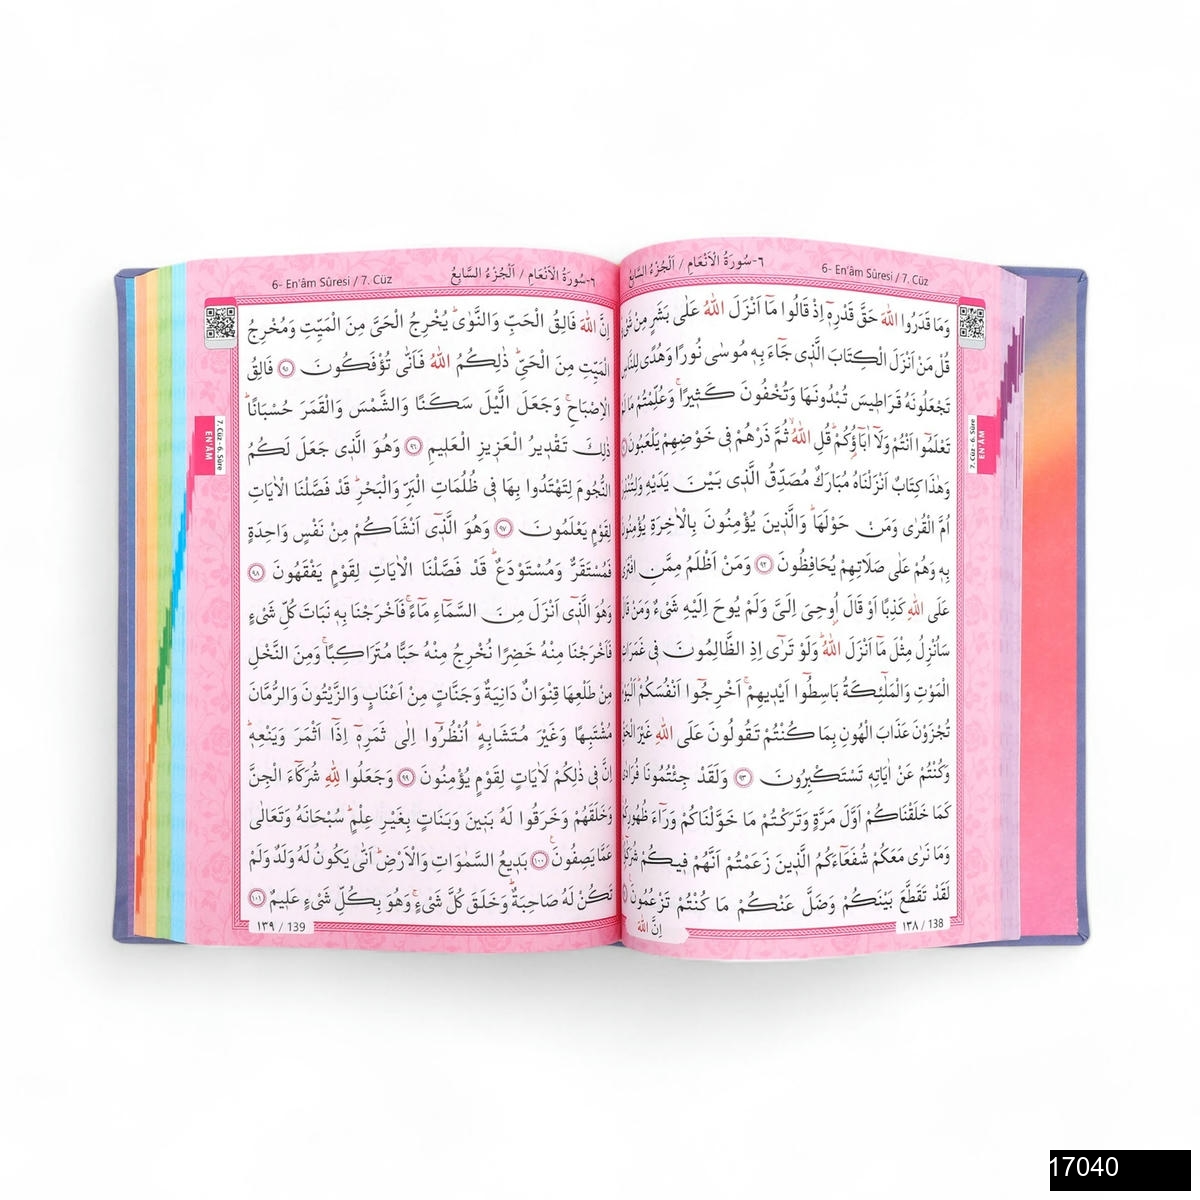 6- En'âm Sûresi / 7. Cüz
٦-سُورَةُ الْاَنْعَامِ / اَلْجُزْءُ السَّابِعُ
وَمَا قَدَرُوا اللّٰهَ حَقَّ قَدْرِه۪ٓ اِذْ قَالُوا مَٓا اَنْزَلَ اللّٰهُ عَلٰى بَشَرٍ مِنْ
قُلْ مَنْ اَنْزَلَ الْكِتَابَ الَّذ۪ي جَٓاءَ بِه۪ مُوسٰى نُورًا وَهُدًى لِلنَّاسِ
تَجْعَلُونَهُ قَرَاط۪يسَ تُبْدُونَهَا وَتُخْفُونَ كَث۪يرًاۚ وَعُلِّمْتُمْ مَا
تَعْلَمُٓوا اَنْتُمْ وَلَٓا اٰبَٓاؤُ۬كُمْۜ قُلِ اللّٰهُۙ ثُمَّ ذَرْهُمْ ف۪ي خَوْضِهِمْ يَلْعَبُونَ
وَهٰذَا كِتَابٌ اَنْزَلْنَاهُ مُبَارَكٌ مُصَدِّقُ الَّذ۪ي بَيْنَ يَدَيْهِ
اُمَّ الْقُرٰى وَمَنْ حَوْلَهَاۜ وَالَّذ۪ينَ يُؤْمِنُونَ بِالْاٰخِرَةِ
بِه۪ وَهُمْ عَلٰى صَلَاتِهِمْ يُحَافِظُونَ ﴿٩٢﴾ وَمَنْ اَظْلَمُ مِمَّنِ
عَلَى اللّٰهِ كَذِبًا اَوْ قَالَ اُو۫حِيَ اِلَيَّ وَلَمْ يُوحَ اِلَيْهِ شَيْءٌ وَمَنْ
سَاُنْزِلُ مِثْلَ مَٓا اَنْزَلَ اللّٰهُۜ وَلَوْ تَرٰٓى اِذِ الظَّالِمُونَ ف۪ي
الْمَوْتِ وَالْمَلٰٓئِكَةُ بَاسِطُٓوا اَيْد۪يهِمْۚ اَخْرِجُٓوا اَنْفُسَكُمْۜ
تُجْزَوْنَ عَذَابَ الْهُونِ بِمَا كُنْتُمْ تَقُولُونَ عَلَى اللّٰهِ غَيْرَ
وَكُنْتُمْ عَنْ اٰيَاتِه۪ تَسْتَكْبِرُونَ ﴿٩٣﴾ وَلَقَدْ جِئْتُمُونَا
كَمَا خَلَقْنَاكُمْ اَوَّلَ مَرَّةٍ وَتَرَكْتُمْ مَا خَوَّلْنَاكُمْ وَرَٓاءَ
وَمَا نَرٰى مَعَكُمْ شُفَعَٓاءَكُمُ الَّذ۪ينَ زَعَمْتُمْ اَنَّهُمْ ف۪يكُمْ
لَقَدْ تَقَطَّعَ بَيْنَكُمْ وَضَلَّ عَنْكُمْ مَا كُنْتُمْ تَزْعُمُونَ
اِنَّ اللّٰهَ
١٣٨ / 138
7. Cüz - 6. Sûre
EN'ÂM
6- En'âm Sûresi / 7. Cüz
٦-سُورَةُ الْاَنْعَامِ / اَلْجُزْءُ السَّابِعُ
اِنَّ اللّٰهَ فَالِقُ الْحَبِّ وَالنَّوٰىۜ يُخْرِجُ الْحَيَّ مِنَ الْمَيِّتِ وَمُخْرِجُ
الْمَيِّتِ مِنَ الْحَيِّۜ ذٰلِكُمُ اللّٰهُ فَاَنّٰى تُؤْفَكُونَ ﴿٩٥﴾ فَالِقُ
الْاِصْبَاحِۚ وَجَعَلَ الَّيْلَ سَكَنًا وَالشَّمْسَ وَالْقَمَرَ حُسْبَانًاۜ
ذٰلِكَ تَقْد۪يرُ الْعَز۪يزِ الْعَل۪يمِ ﴿٩٦﴾ وَهُوَ الَّذ۪ي جَعَلَ لَكُمُ
النُّجُومَ لِتَهْتَدُوا بِهَا ف۪ي ظُلُمَاتِ الْبَرِّ وَالْبَحْرِۜ قَدْ فَصَّلْنَا الْاٰيَاتِ
لِقَوْمٍ يَعْلَمُونَ ﴿٩٧﴾ وَهُوَ الَّذ۪ٓي اَنْشَاَكُمْ مِنْ نَفْسٍ وَاحِدَةٍ
فَمُسْتَقَرٌّ وَمُسْتَوْدَعٌۜ قَدْ فَصَّلْنَا الْاٰيَاتِ لِقَوْمٍ يَفْقَهُونَ ﴿٩٨﴾
وَهُوَ الَّذ۪ٓي اَنْزَلَ مِنَ السَّمَٓاءِ مَٓاءًۚ فَاَخْرَجْنَا بِه۪ نَبَاتَ كُلِّ شَيْءٍ
فَاَخْرَجْنَا مِنْهُ خَضِرًا نُخْرِجُ مِنْهُ حَبًّا مُتَرَاكِبًاۚ وَمِنَ النَّخْلِ
مِنْ طَلْعِهَا قِنْوَانٌ دَانِيَةٌ وَجَنَّاتٍ مِنْ اَعْنَابٍ وَالزَّيْتُونَ وَالرُّمَّانَ
مُشْتَبِهًا وَغَيْرَ مُتَشَابِهٍۜ اُنْظُرُٓوا اِلٰى ثَمَرِه۪ٓ اِذَٓا اَثْمَرَ وَيَنْعِه۪ۜ
اِنَّ ف۪ي ذٰلِكُمْ لَاٰيَاتٍ لِقَوْمٍ يُؤْمِنُونَ ﴿٩٩﴾ وَجَعَلُوا لِلّٰهِ شُرَكَٓاءَ الْجِنَّ
وَخَلَقَهُمْ وَخَرَقُوا لَهُ بَن۪ينَ وَبَنَاتٍ بِغَيْرِ عِلْمٍۜ سُبْحَانَهُ وَتَعَالٰى
عَمَّا يَصِفُونَ۟ ﴿١٠٠﴾ بَد۪يعُ السَّمٰوَاتِ وَالْاَرْضِۜ اَنّٰى يَكُونُ لَهُ وَلَدٌ وَلَمْ
تَكُنْ لَهُ صَاحِبَةٌۜ وَخَلَقَ كُلَّ شَيْءٍۚ وَهُوَ بِكُلِّ شَيْءٍ عَل۪يمٌ ﴿١٠١﴾
١٣٩ / 139
7. Cüz - 6. Sûre
EN'ÂM
17040